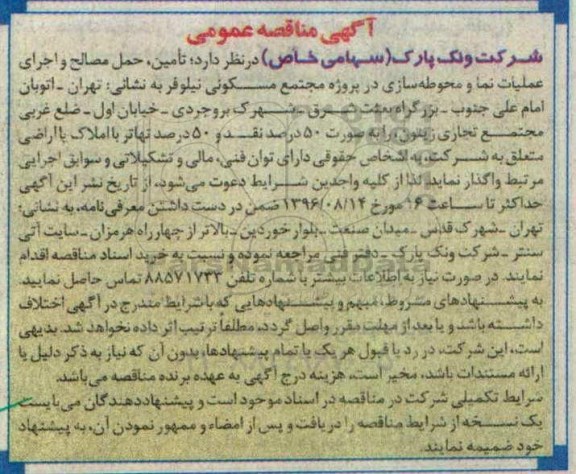 آگهی مناقصه عمومی
شرکت ونک پارک (سهامی خاص) در نظر دارد؛ تأمین، حمل مصالح و اجرای
عملیات نما و محوطه‌سازی در پروژه مجتمع مسکونی نیلوفر به نشانی: تهران ـ اتوبان
امام علی جنوب ـ بزرگراه بعثت شرق ـ شهرک بروجردی ـ خیابان اول ـ ضلع غربی
مجتمع تجاری زیتون، را به صورت ۵۰ درصد نقد و ۵۰ درصد تهاتر با املاک یا اراضی
متعلق به شرکت، به اشخاص حقوقی دارای توان فنی، مالی و تشکیلاتی و سوابق اجرایی
مرتبط واگذار نماید. لذا از کلیه واجدین شرایط دعوت می‌شود، از تاریخ نشر این آگهی
حداکثر تا ساعت ۱۶ مورخ ۱۳۹۶/۰۸/۱۴ ضمن در دست داشتن معرفی‌نامه، به نشانی:
تهران ـ شهرک قدس ـ میدان صنعت ـ بلوار خوردین ـ بالاتر از چهارراه هرمزان ـ سایت آتی
سنتر ـ شرکت ونک پارک ـ دفتر فنی مراجعه نموده و نسبت به خرید اسناد مناقصه اقدام
نمایند. در صورت نیاز به اطلاعات بیشتر با شماره تلفن ۸۸۵۷۱۷۳۳ تماس حاصل نمایید.
به پیشنهادهای مشروط، مبهم و پیشنهادهایی که با شرایط مندرج در آگهی اختلاف
داشته باشد و یا بعد از مهلت مقرر واصل گردد، مطلقاً ترتیب اثر داده نخواهد شد. بدیهی
است، این شرکت، در رد یا قبول هر یک یا تمام پیشنهادها، بدون آن که نیاز به ذکر دلیل یا
ارائه مستندات باشد، مخیر است. هزینه درج آگهی به عهده برنده مناقصه می‌باشد.
شرایط تکمیلی شرکت در مناقصه در اسناد موجود است و پیشنهاددهندگان می‌بایست
یک نسخه از شرایط مناقصه را دریافت و پس از امضاء و ممهور نمودن آن، به پیشنهاد
خود ضمیمه نمایند.